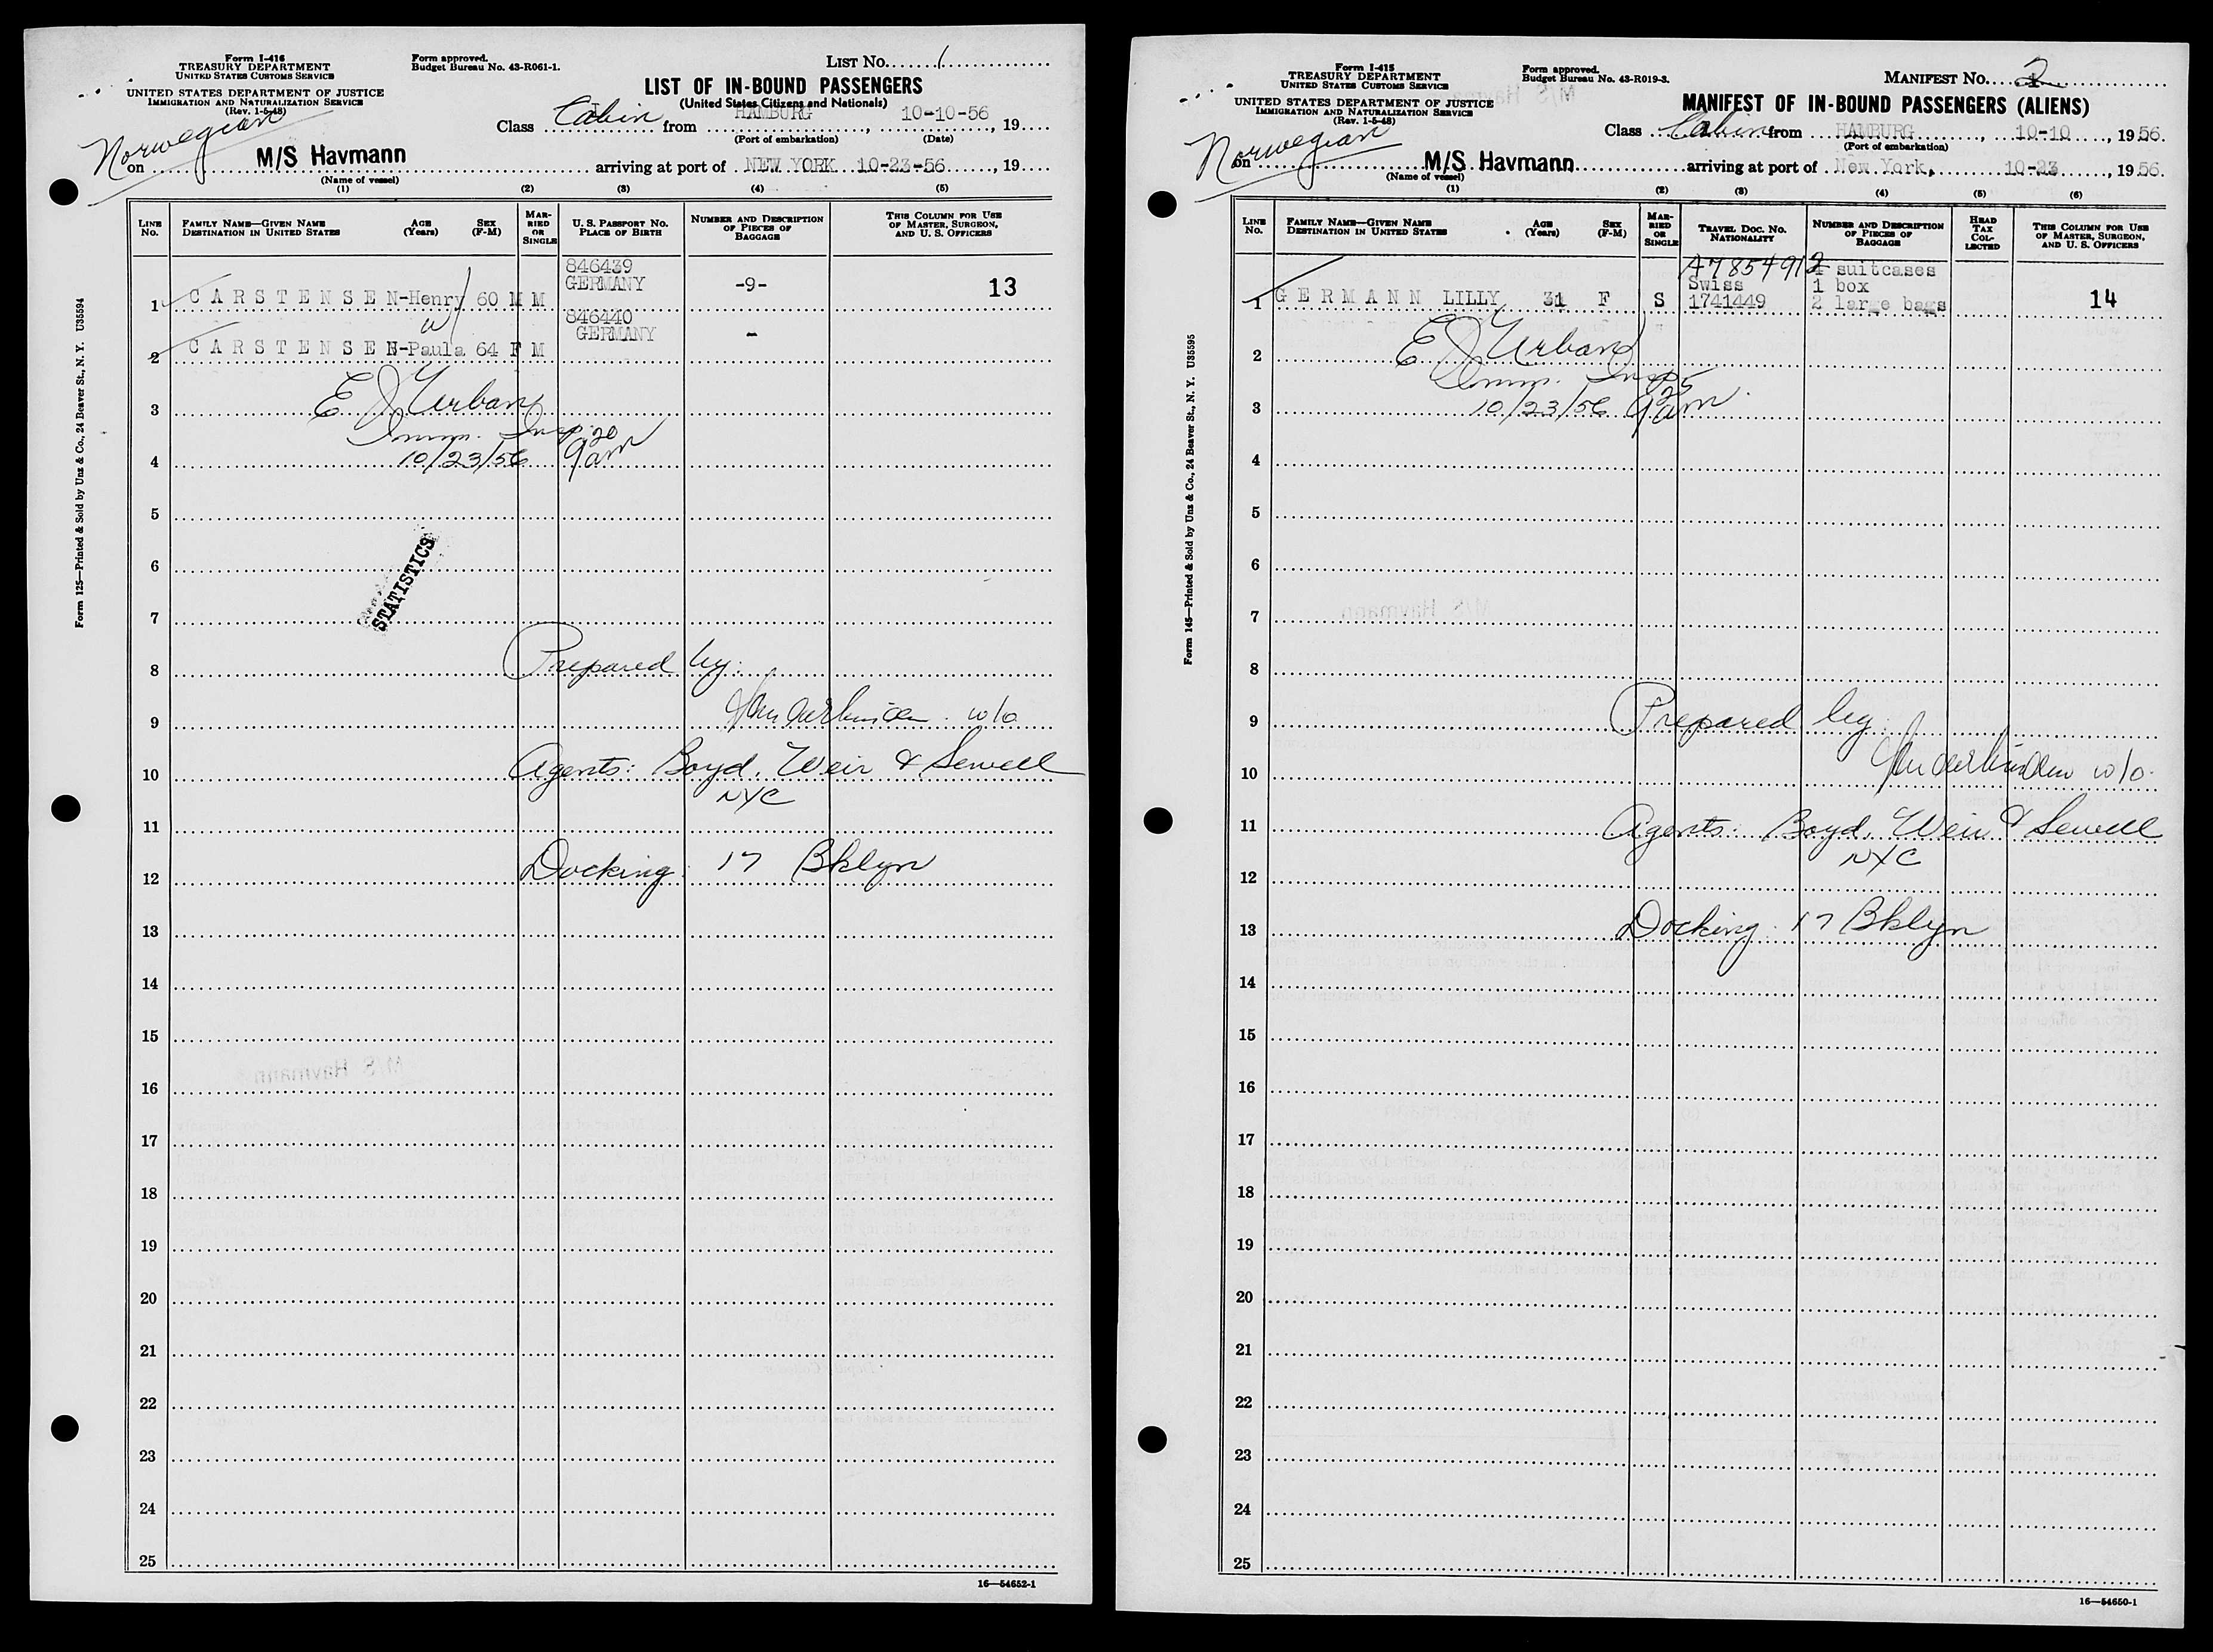 Form I-416
TREASURY DEPARTMENT
UNITED STATES CUSTOMS SERVICE
UNITED STATES DEPARTMENT OF JUSTICE
IMMIGRATION AND NATURALIZATION SERVICE
(Rev. 1-5-48)
Form approved.
Budget Bureau No. 43-R061-1.
LIST No. 1
LIST OF IN-BOUND PASSENGERS
(United States Citizens and Nationals)
Class Cabin from HAMBURG, 10-10-56, 19
(Port of embarkation) (Date)
Norwegian
on M/S Havmann arriving at port of NEW YORK 10-23-56, 19
(Name of vessel)
(1) (2) (3) (4) (5)
LINE No. FAMILY NAME—GIVEN NAME DESTINATION IN UNITED STATES AGE (Years) SEX (F-M) MARRIED OR SINGLE U.S. PASSPORT No. PLACE OF BIRTH NUMBER AND DESCRIPTION OF PIECES OF BAGGAGE THIS COLUMN FOR USE OF MASTER, SURGEON, AND U. S. OFFICERS
846439
GERMANY -9- 13
1 C A R S T E N S E N-Henry 60 M M
w
846440
GERMANY -
2 C A R S T E N S E N-Paula 64 F M
E J Urban
3
Imm. Insp. 20
4 10/23/56 9am
5
6
STATISTICS
7
8 Prepared by:
9 w/o
10 Agents: Boyd, Weir & Sewell
NYC
11
12 Docking: 17 Bklyn
13
14
15
16
M/S Havmann
17
18
19
20
21
22
23
24
25
16—54652-1
Form 125—Printed & Sold by Unz & Co., 24 Beaver St., N. Y. U35594
Form I-415
TREASURY DEPARTMENT
UNITED STATES CUSTOMS SERVICE
UNITED STATES DEPARTMENT OF JUSTICE
IMMIGRATION AND NATURALIZATION SERVICE
(Rev. 1-5-48)
Form approved.
Budget Bureau No. 43-R019-3.
MANIFEST No. 2
MANIFEST OF IN-BOUND PASSENGERS (ALIENS)
Class Cabin from HAMBURG, 10-10, 1956.
(Port of embarkation)
Norwegian
on M/S Havmann arriving at port of New York, 10-23, 1956.
(Name of vessel)
(1) (2) (3) (4) (5) (6)
LINE No. FAMILY NAME—GIVEN NAME DESTINATION IN UNITED STATES AGE (Years) SEX (F-M) MARRIED OR SINGLE TRAVEL DOC. No. NATIONALITY NUMBER AND DESCRIPTION OF PIECES OF BAGGAGE HEAD TAX COLLECTED THIS COLUMN FOR USE OF MASTER, SURGEON, AND U. S. OFFICERS
A7854912 suitcases
Swiss 1 box
1 G E R M A N N LILLY 31 F S 1741449 2 large bags 14
2 E J Urban
Imm. Insp 25
3 10/23/56 9am
4
5
6
7
M/S Havmann
8
9 Prepared by
10 w/o
11 Agents: Boyd, Weir & Sewell
NYC
12
13 Docking: 17 Bklyn
14
15
16
17
18
19
20
21
22
23
24
25
16—54650-1
Form 145—Printed & Sold by Unz & Co., 24 Beaver St., N. Y. U35595